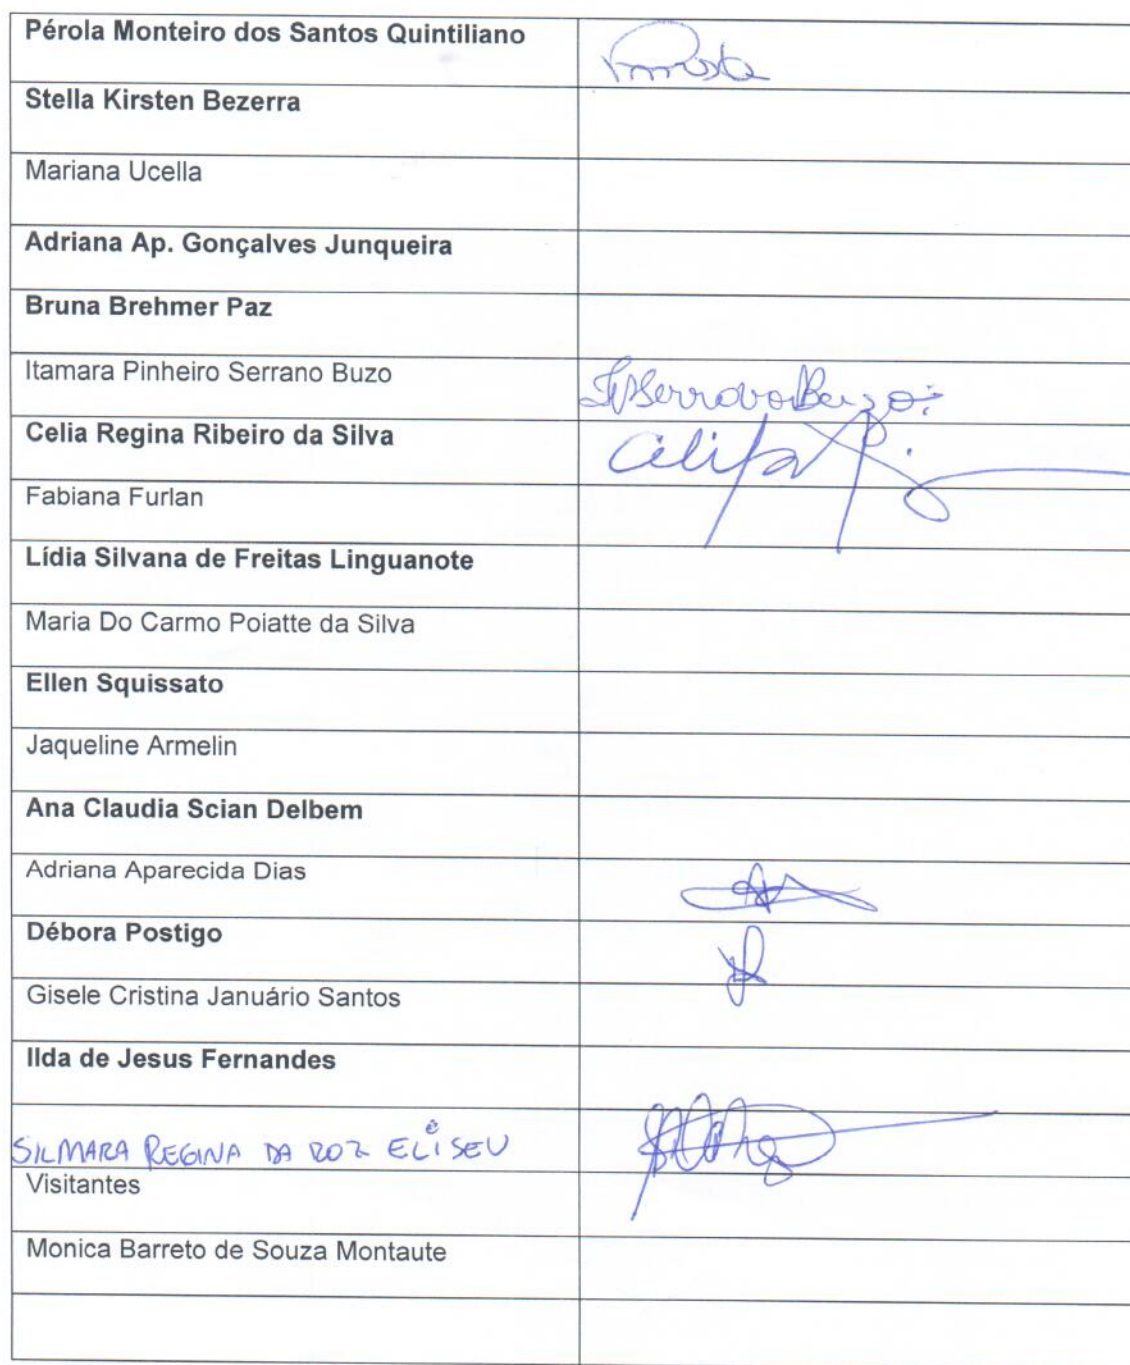 Pérola Monteiro dos Santos Quintiliano
Stella Kirsten Bezerra
Mariana Ucella
Adriana Ap. Gonçalves Junqueira
Bruna Brehmer Paz
Itamara Pinheiro Serrano Buzo
Celia Regina Ribeiro da Silva
Fabiana Furlan
Lídia Silvana de Freitas Linguanote
Maria Do Carmo Poiatte da Silva
Ellen Squissato
Jaqueline Armelin
Ana Claudia Scian Delbem
Adriana Aparecida Dias
Débora Postigo
Gisele Cristina Januário Santos
Ilda de Jesus Fernandes
SILMARA REGINA DA ROZ ELISEU
Visitantes
Monica Barreto de Souza Montaute